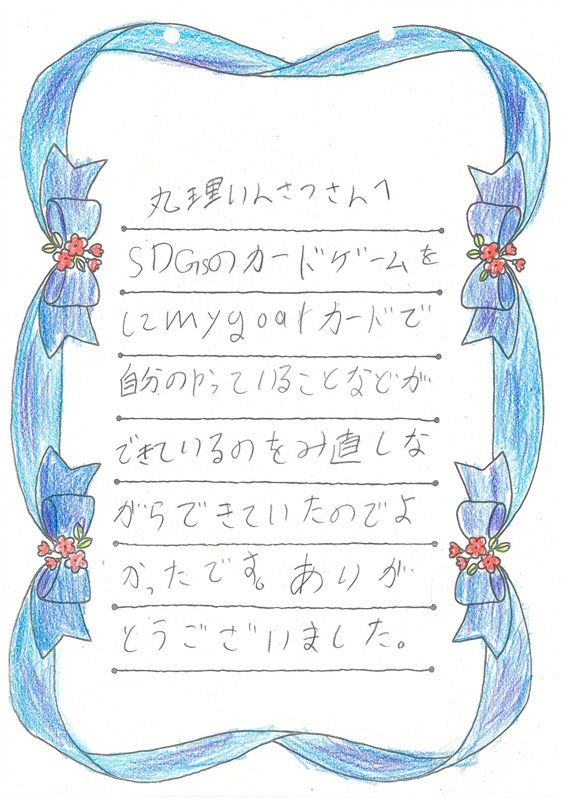 丸理いんさつさんへ
SDGsのカードゲームを
にmygoalカードで
自分のやっていることなどが
できているのをみ直しな
がらできていたのでよ
かったです。ありが
とうございました。